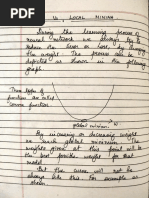 LOCAL MINIMA
During the learning process of
neural network we always try to
reduce the error or loss, by changing
the weight. The process can be
depicted as shown in the following
graph.
These types of
functions are called
convex function.
global minimum.
By increasing or decreasing weight
we reach global minimum. The
weights given at this point will be
the best possible weights for that
model.
But the curve will not be
always like this for example as
shown